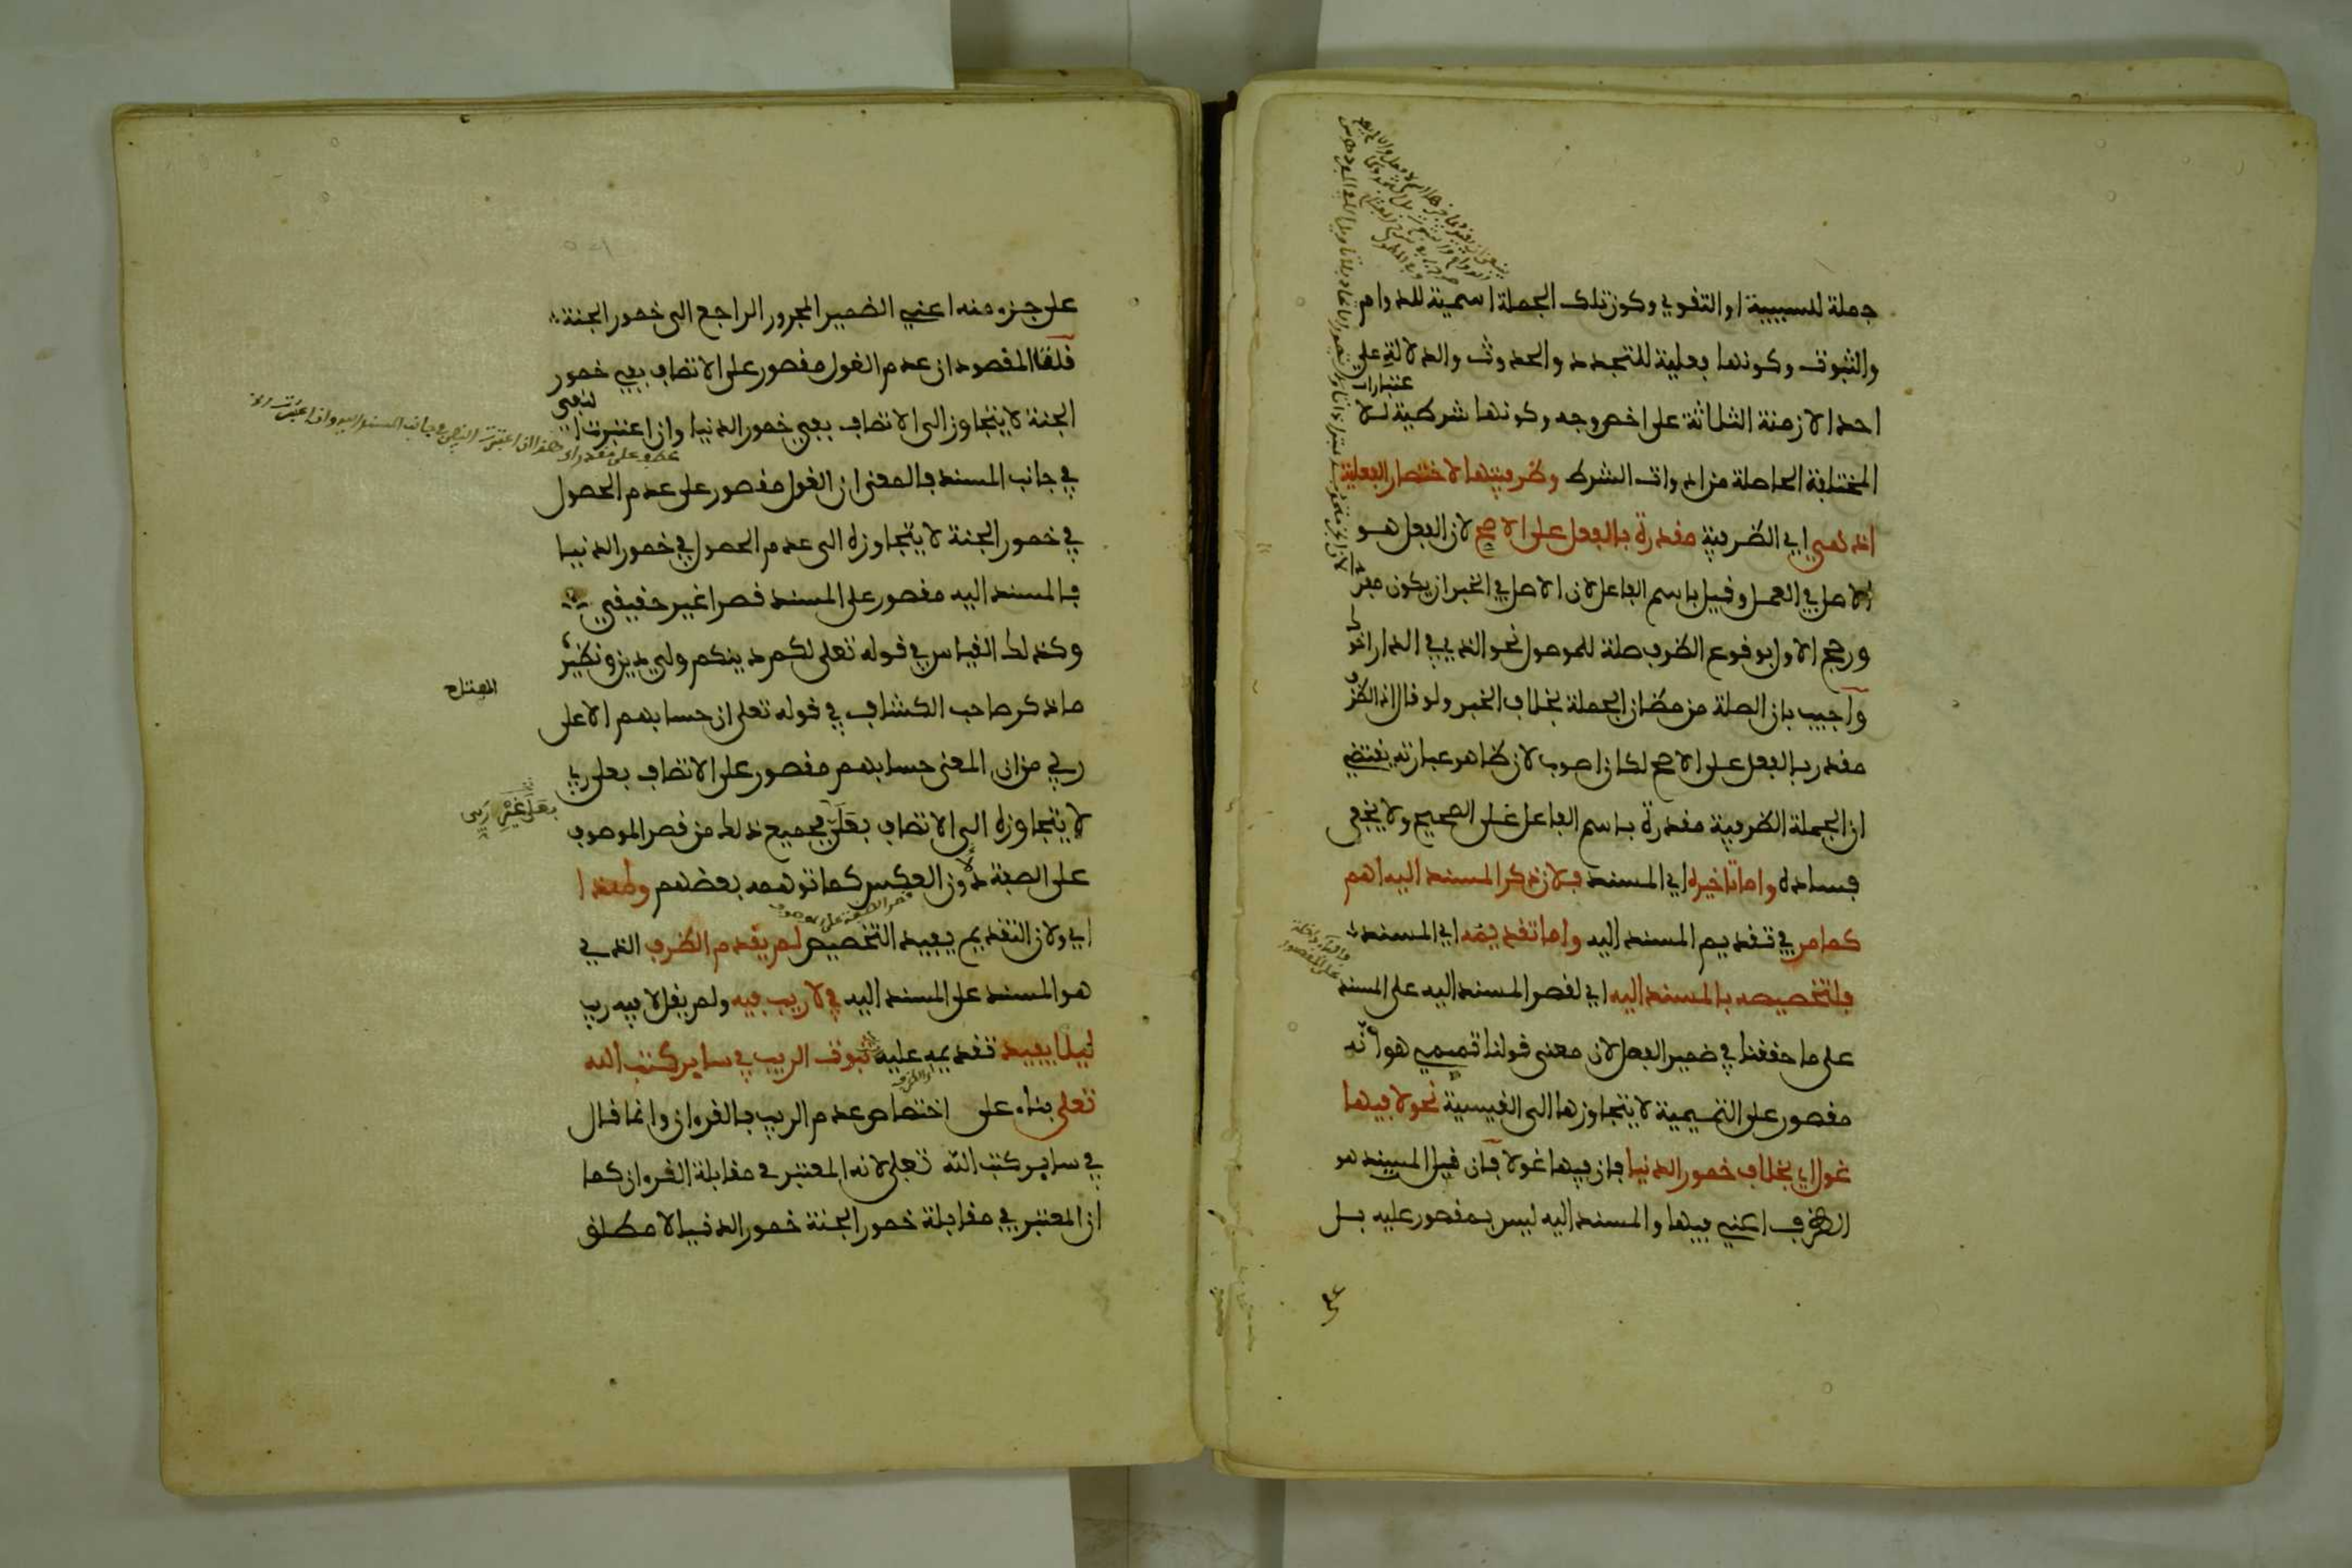 جملة للسببية او التقوي وكون تلك الجملة اسمية للدوام
والثبوت وكونها فعلية للتجدد والحدوث والدلالة على
احد الازمنة الثلاثة على اخصر وجه وكونها شرطية للاعتبارات
المختلفة الحاصلة من ادوات الشرط وظرفيتها لاختصار الفعلية
اذ هي اي الظرفية مقدرة بالفعل على الاصح لان الفعل هو
الاصل في العمل وقيل باسم الفاعل لان الاصل في الخبر ان يكون مفردا
ورجح الاول بوقوع الظرف صلة للموصول نحو الذي في الدار اخوك
واجيب بان الصلة من مظان الجملة بخلاف الخبر ولو قال اذ الظرف
مقدر بالفعل على الاصح لكان اصوب لان ظاهر عبارته يقتضي
ان الجملة الظرفية مقدرة باسم الفاعل على الصحيح ولا يخفى
فساده واما تاخيره اي المسند فلان ذكر المسند اليه اهم
كما مر في تقديم المسند اليه واما تقديمه اي المسند
فلتخصيصه بالمسند اليه اي لقصر المسند اليه على المسند
على ما حققنا في ضمير الفصل لان معنى قولنا تميمي هو انه
مقصور على التميمية لا يتجاوزها الى القيسية نحو لا فيها
غول اي بخلاف خمور الدنيا فان فيها غولا فان قيل المسند هو
الظرف اعني فيها والمسند اليه ليس بمقصور عليه بل
على
على جزء منه اعني الضمير المجرور الراجع الى خمور الجنة
قلنا المقصود ان عدم الغول مقصور على الاتصاف بفي خمور
الجنة لا يتجاوز الى الاتصاف بفي خمور الدنيا وان اعتبرت النفي
في جانب المسند فالمعنى ان الغول مقصور على عدم الحصول
في خمور الجنة لا يتجاوزه الى عدم الحصول في خمور الدنيا
فالمسند اليه مقصور على المسند قصرا غير حقيقي
وكذلك القياس في قوله تعلى لكم دينكم ولي دين ونظير
ما ذكر صاحب الكشاف في قوله تعلى ان حسابهم الا على
المفتاح
ربي من ان المعنى حسابهم مقصور على الاتصاف بعلى ربي
لا يتجاوزه الى الاتصاف بعلى فجميع ذلك من قصر الموصوف
بعلى غير ربي
على الصفة دون العكس كما توهمه بعضهم ولهذا
اي ولان التقديم يفيد التخصيص لم يقدم الظرف الذي
هو المسند على المسند اليه في لا ريب فيه ولم يقل لا فيه ريب
ليلا يفيد تقديمه عليه ثبوت الريب في ساير كتب الله
تعلى بناء على اختصاص عدم الريب بالقرءان وانما قال
في ساير كتب الله تعلى لانه المعتبر في مقابلة القرءان كما
ان المعتبر في مقابلة خمور الجنة خمور الدنيا لا مطلق